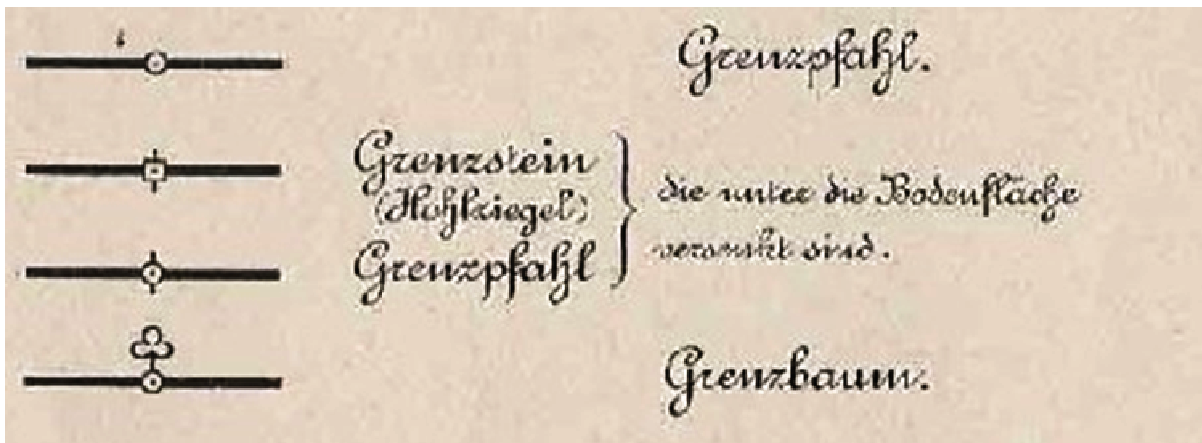 Grenzpfahl.
Grenzstein
(Hohlziegel)
Grenzpfahl
die unter die Bodenfläche
versenkt sind.
Grenzbaum.